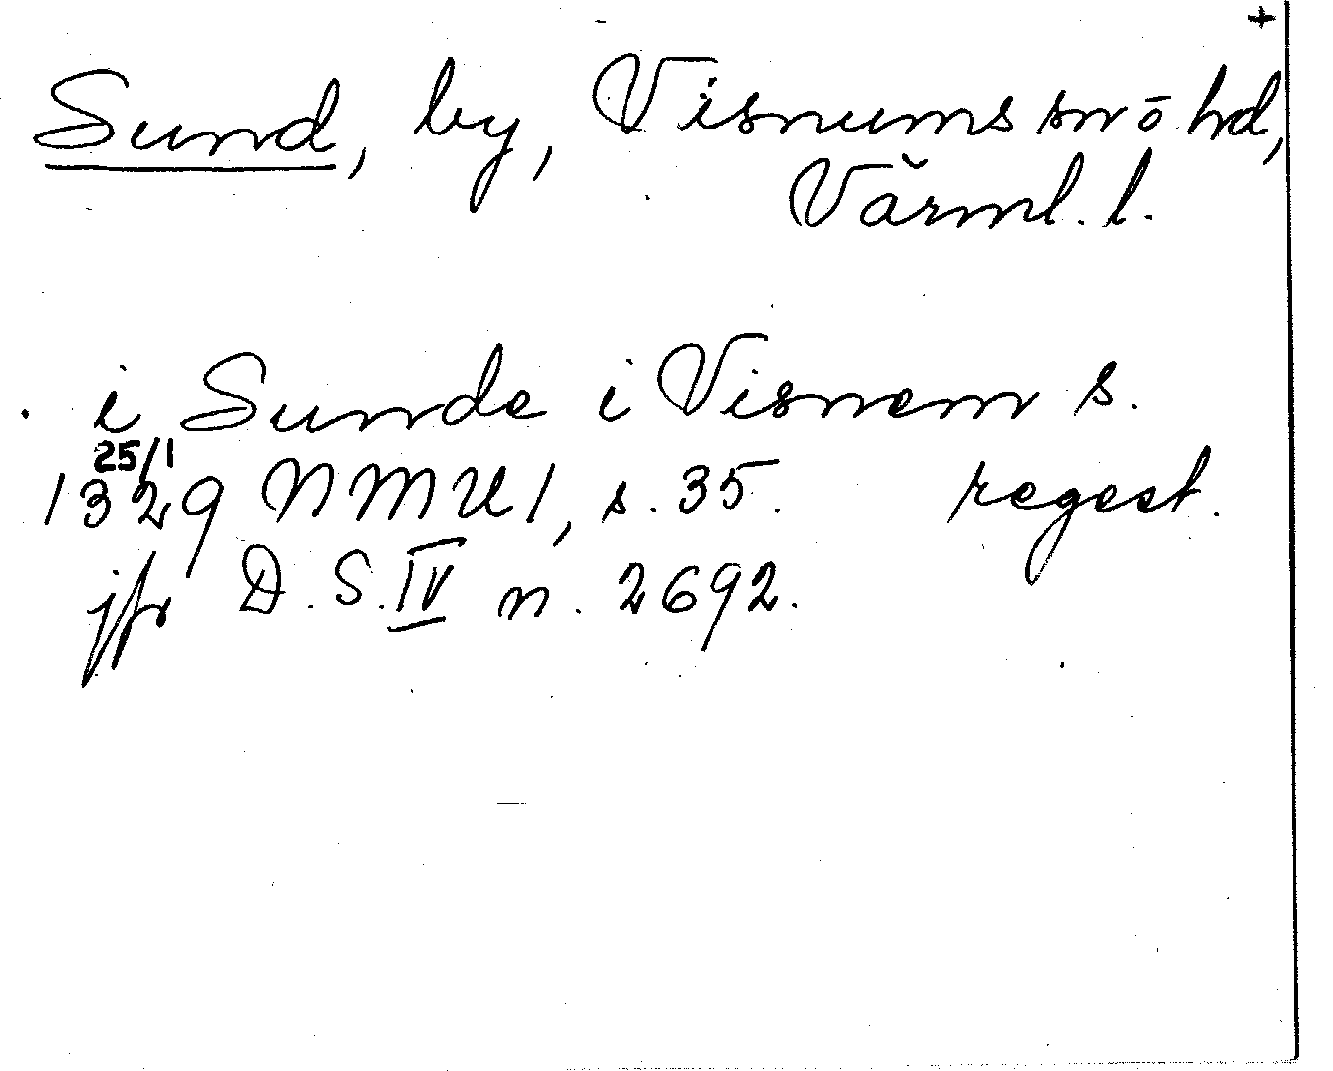 +
Sund, by, Visnums sn ö hd,
Värml. l.
i Sunde i Visnem s.
25/1
1329 NMU1, s. 35. regest.
jfr D.S. IV n. 2692.